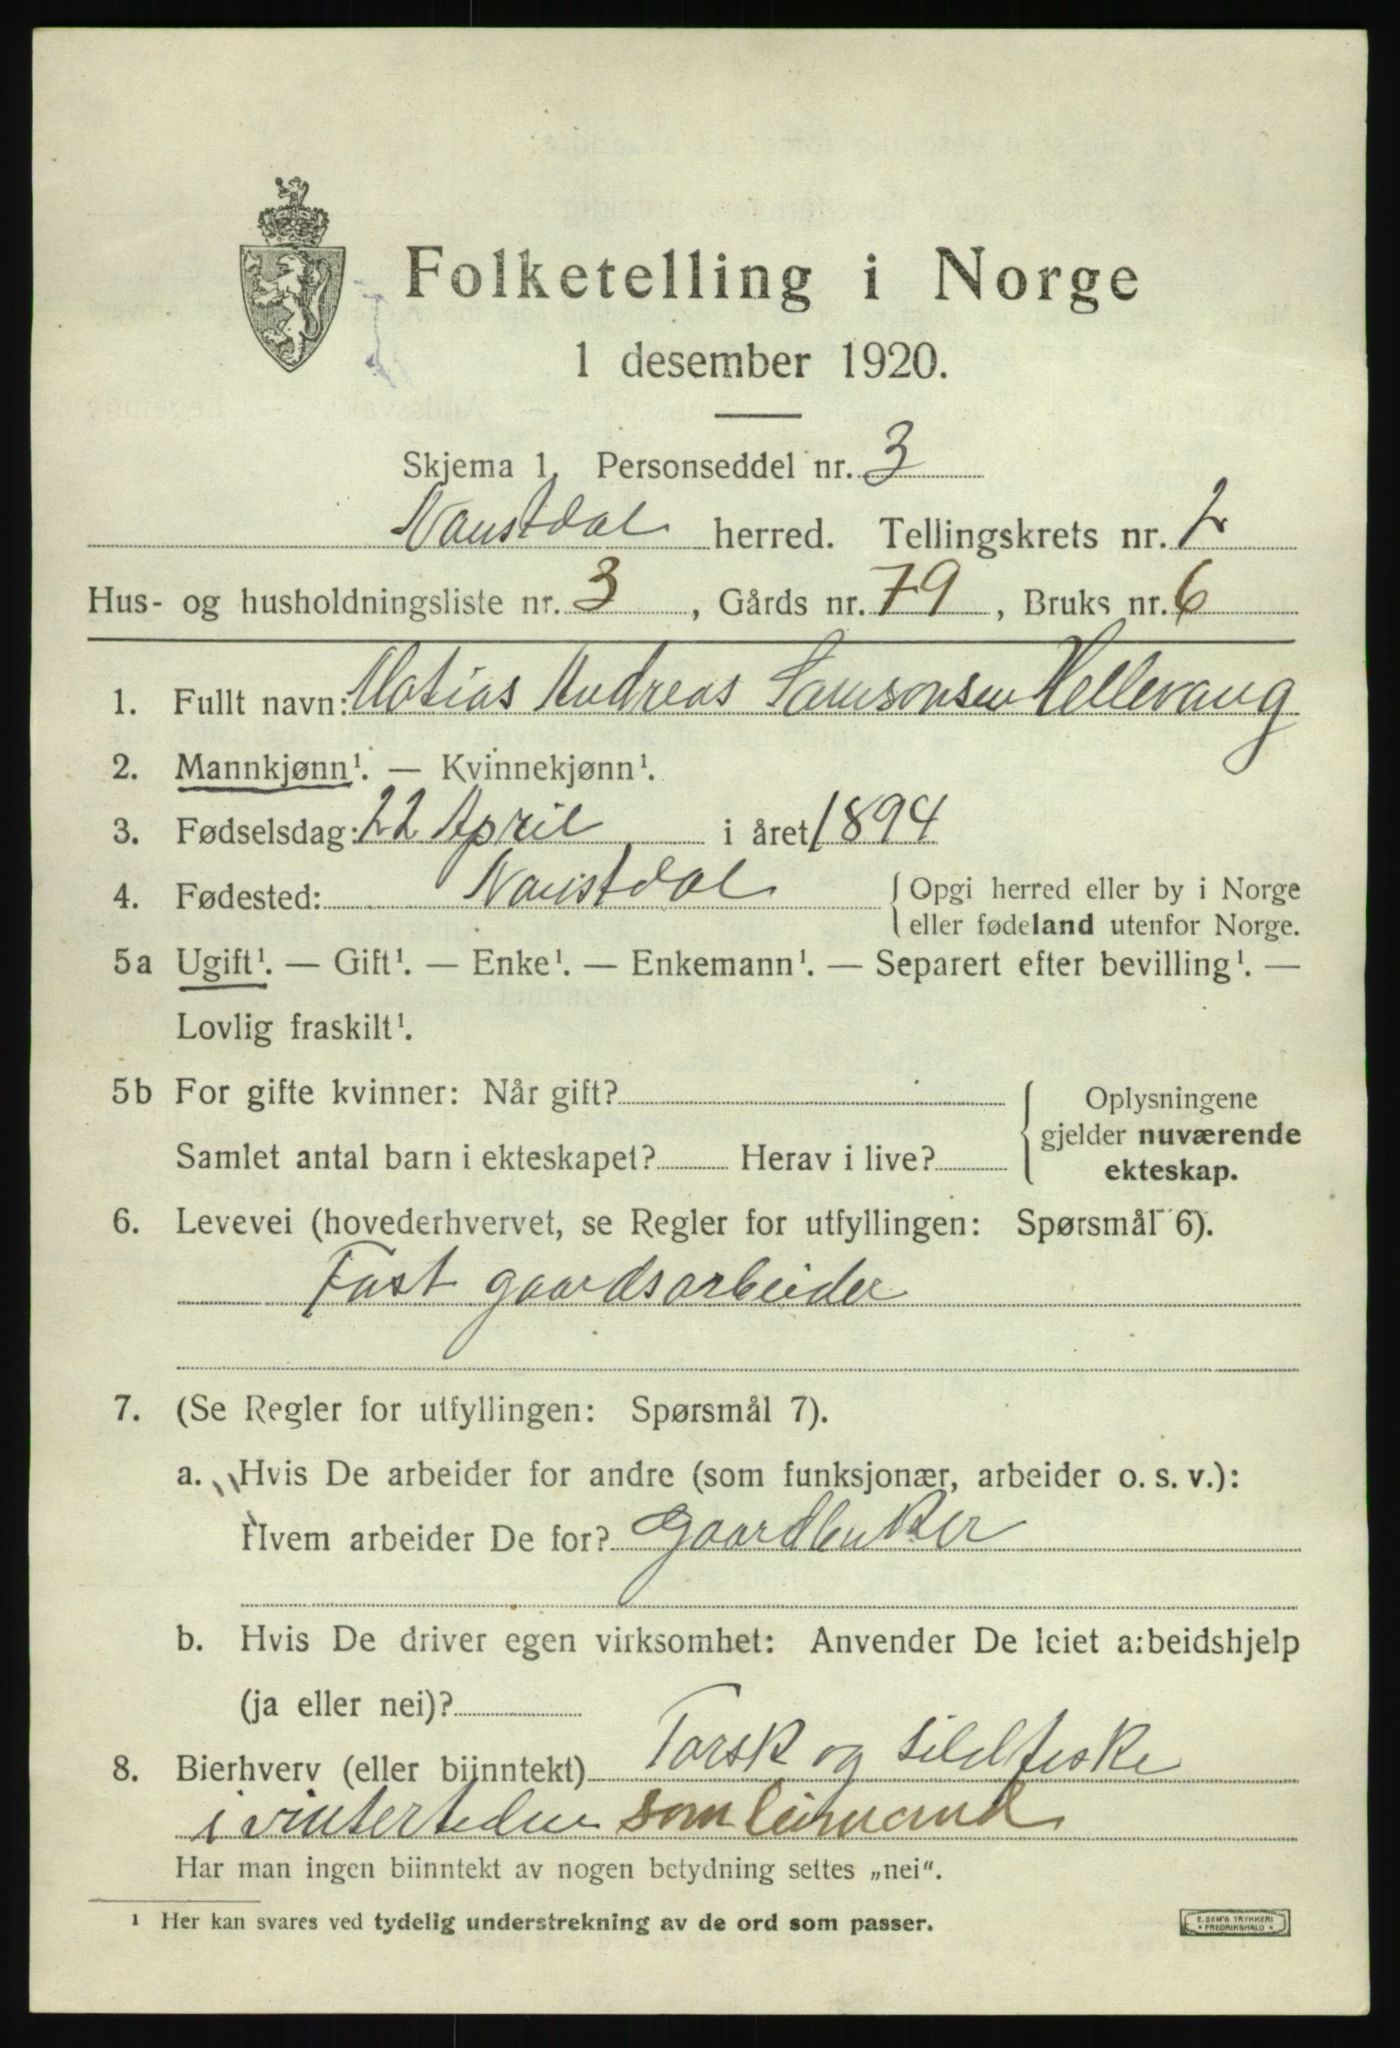 Folketelling i Norge
1 desember 1920.
Skjema 1. Personseddel nr. 3
Naustdal herred. Tellingskrets nr. 2
Hus- og husholdningsliste nr. 3, Gårds nr. 79, Bruks nr. 6
1. Fullt navn: Matias Andreas Samsonsen Hellevang
2. Mannkjønn¹. — Kvinnekjønn¹.
3. Fødselsdag: 22 April i året 1894
4. Fødested: Naustdal { Opgi herred eller by i Norge
eller fødeland utenfor Norge.
5a Ugift¹. — Gift¹. — Enke¹. — Enkemann¹. — Separert efter bevilling¹. —
Lovlig fraskilt¹.
5b For gifte kvinner: Når gift?
Samlet antal barn i ekteskapet? Herav i live?
Oplysningene
gjelder nuværende
ekteskap.
6. Levevei (hovederhvervet, se Regler for utfyllingen: Spørsmål 6).
Fast gaardsarbeider
7. (Se Regler for utfyllingen: Spørsmål 7).
a. Hvis De arbeider for andre (som funksjonær, arbeider o. s. v.):
Hvem arbeider De for? gaardbruker
b. Hvis De driver egen virksomhet: Anvender De leiet arbeidshjelp
(ja eller nei)?
8. Bierhverv (eller biinntekt) Torsk og sildfiske
i vintertiden som leiemand
Har man ingen biinntekt av nogen betydning settes „nei“.
¹ Her kan svares ved tydelig understrekning av de ord som passer.
E. SEM'S TRYKKERI
* FREDRIKSHALD *